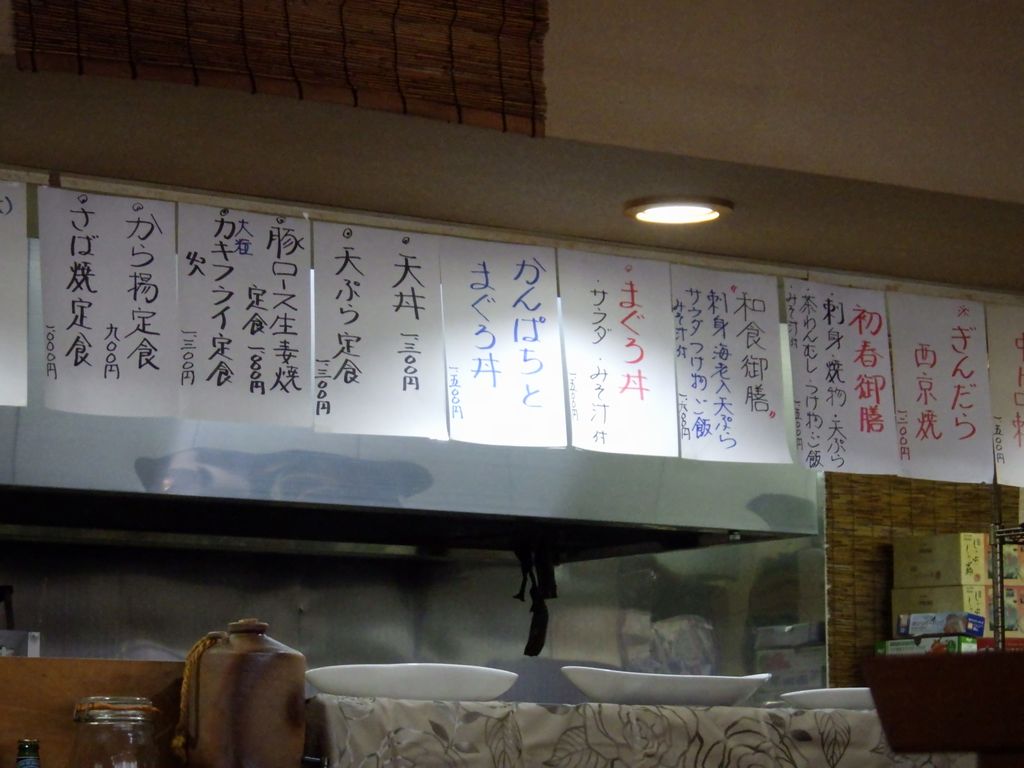 中
ぎんだら
西京焼
初春御膳
刺身・焼物・天ぷら
茶わんむし・つけ物・ご飯
みそ汁付
"和食御膳"
刺身・海老入天ぷら
サラダ・つけ物・ご飯
みそ汁付
まぐろ丼
サラダ・みそ汁付
一五〇〇円
かんぱちと
まぐろ丼
一五〇〇円
天丼 一三〇〇円
天ぷら定食
一三〇〇円
豚ロース生姜焼
定食 一〇〇〇円
大粒
カキフライ定食
一三〇〇円
から揚定食
九〇〇円
さば焼定食
一〇〇〇円